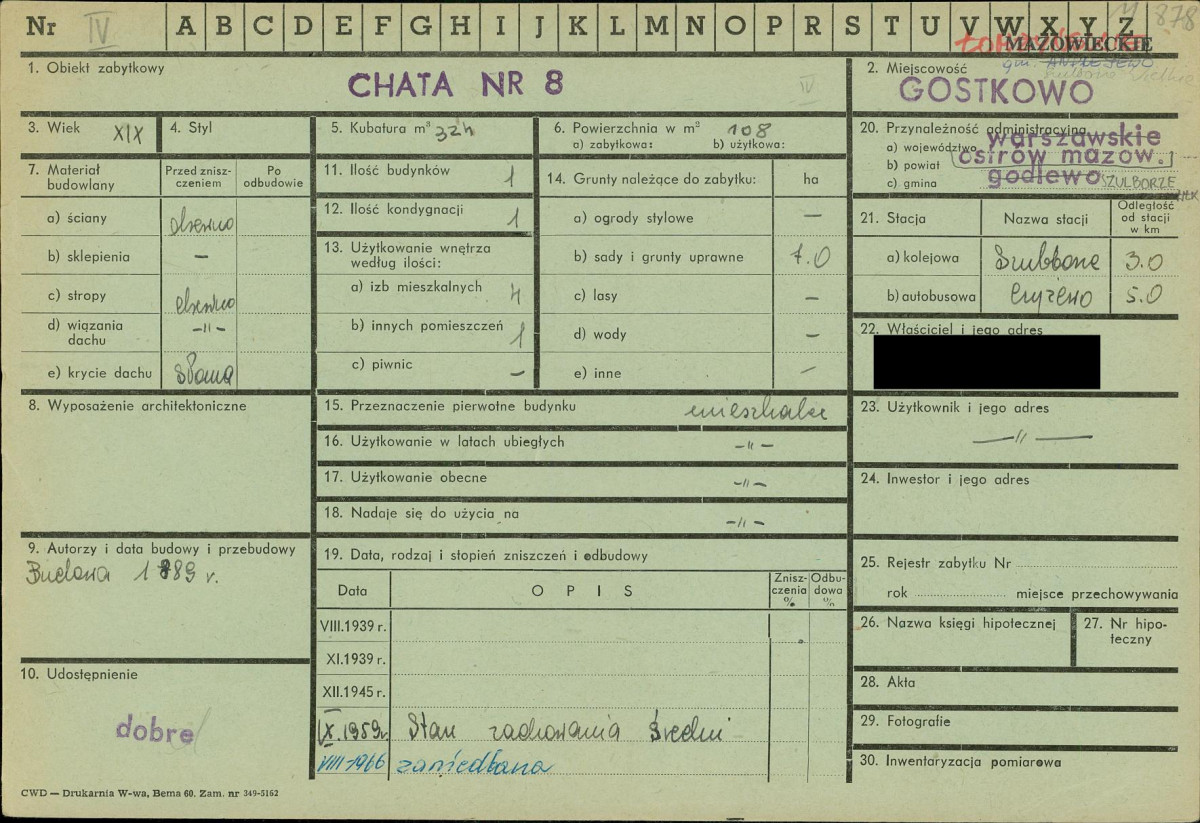 Nr IV A B C D E F G H I J K L M N O P R S T U V W X Y Z 878
MAZOWIECKIE
1. Obiekt zabytkowy
CHATA NR 8
IV
2. Miejscowość
gm. ANDRZEJEWO
GOSTKOWO
3. Wiek XIX
4. Styl
5. Kubatura m³ 324
6. Powierzchnia w m² 108
a) zabytkowa: b) użytkowa:
20. Przynależność administracyjna
a) województwo warszawskie
b) powiat ostrów mazow.
c) gmina godlewo SZULBORZE
7. Materiał budowlany
Przed zniszczeniem
Po odbudowie
a) ściany drewno
b) sklepienia –
c) stropy drewno
d) wiązania dachu –〃–
e) krycie dachu słoma
11. Ilość budynków 1
12. Ilość kondygnacji 1
13. Użytkowanie wnętrza według ilości:
a) izb mieszkalnych 4
b) innych pomieszczeń 1
c) piwnic –
14. Grunty należące do zabytku: ha
a) ogrody stylowe –
b) sady i grunty uprawne 7.0
c) lasy –
d) wody –
e) inne –
21. Stacja
Nazwa stacji
Odległość od stacji w km
a) kolejowa 3.0
b) autobusowa 5.0
22. Właściciel i jego adres
8. Wyposażenie architektoniczne
15. Przeznaczenie pierwotne budynku
16. Użytkowanie w latach ubiegłych –〃–
17. Użytkowanie obecne –〃–
18. Nadaje się do użycia na –〃–
23. Użytkownik i jego adres
—〃—
24. Inwestor i jego adres
9. Autorzy i data budowy i przebudowy
Budowa 1889 r.
19. Data, rodzaj i stopień zniszczeń i odbudowy
Data
OPIS
Zniszczenia %
Odbudowa %
VIII.1939 r.
XI.1939 r.
XII.1945 r.
IX.1959r. Stan zachowania średni
VIII-1966 zaniedbana
25. Rejestr zabytku Nr
rok miejsce przechowywania
26. Nazwa księgi hipotecznej
27. Nr hipoteczny
28. Akta
29. Fotografie
30. Inwentaryzacja pomiarowa
10. Udostępnienie
dobre
CWD — Drukarnia W-wa, Bema 60. Zam. nr 349-5162